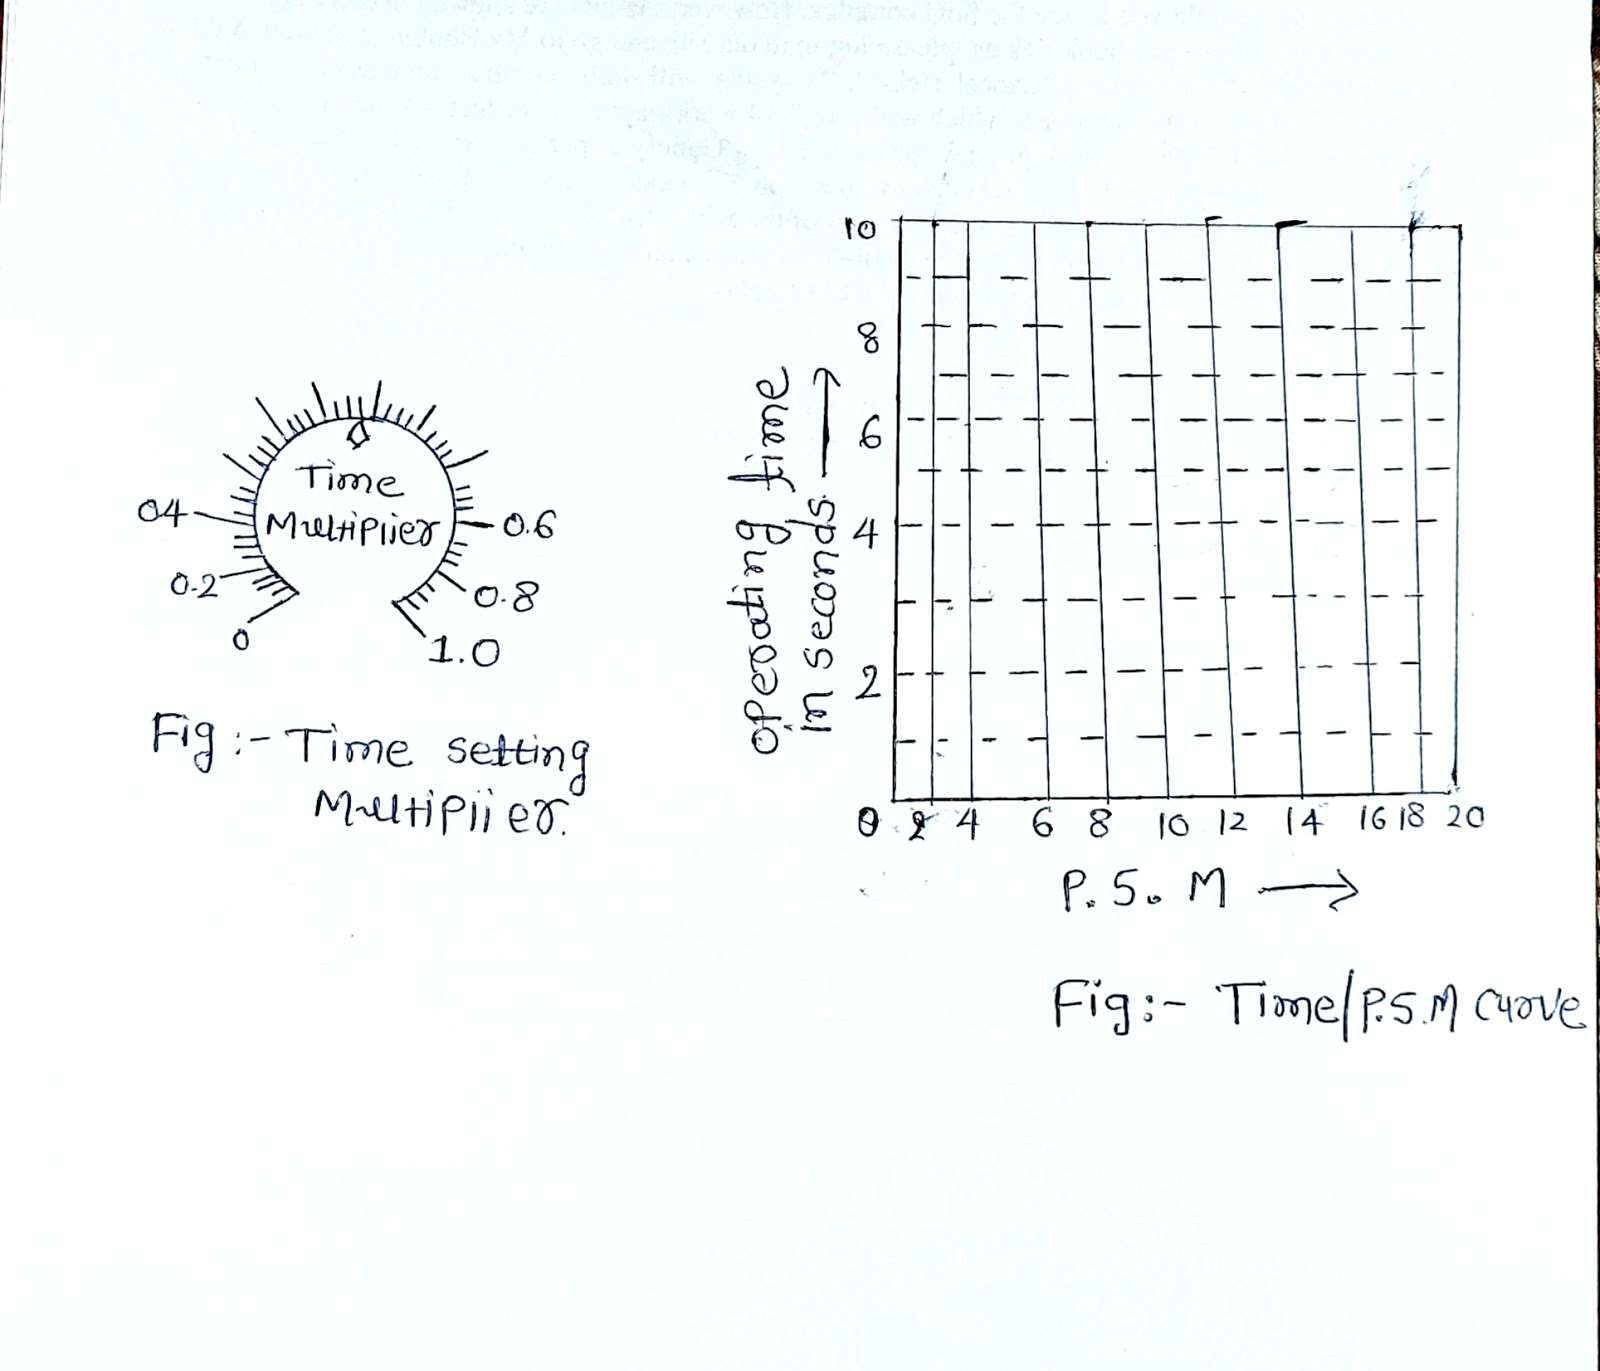 Time
Multiplier
0
0.2
04
0.6
0.8
1.0
Fig :- Time setting
Multiplier.
operating time
in seconds
10
8
6
4
2
0 2 4 6 8 10 12 14 16 18 20
P. S. M
Fig :- Time/P.S.M curve